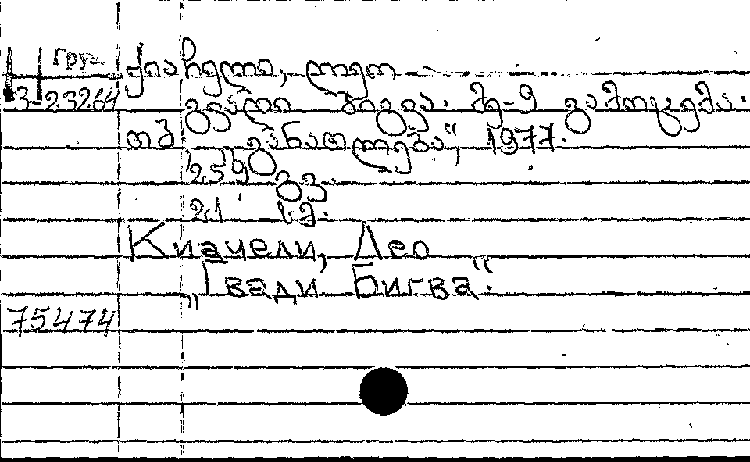 Груз ქიაჩელი, ლეო
3-23264 გვადი ბიგვა. მე-9 გამოცემა.
თბ „განათლება“, 1977.
259 გვ.
21 ს.მ.
Киачели, Лео
„Гвади Бигва“.
75474